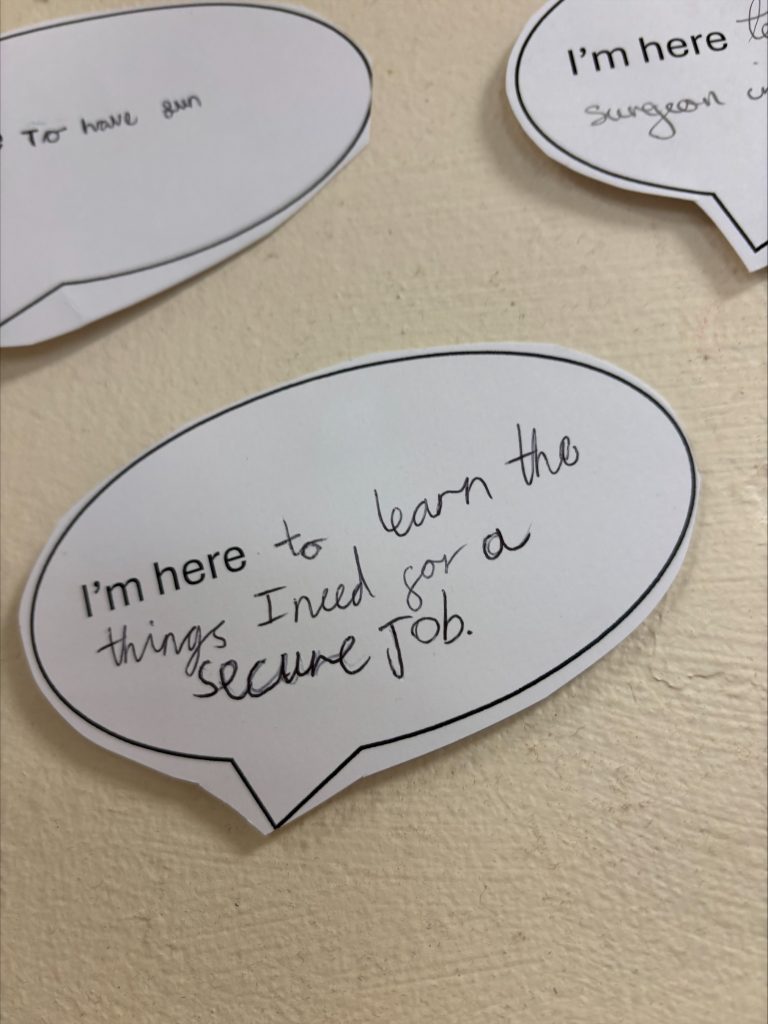 To have fun
I'm here
surgeon
I'm here to learn the
things I need for a
secure Job.